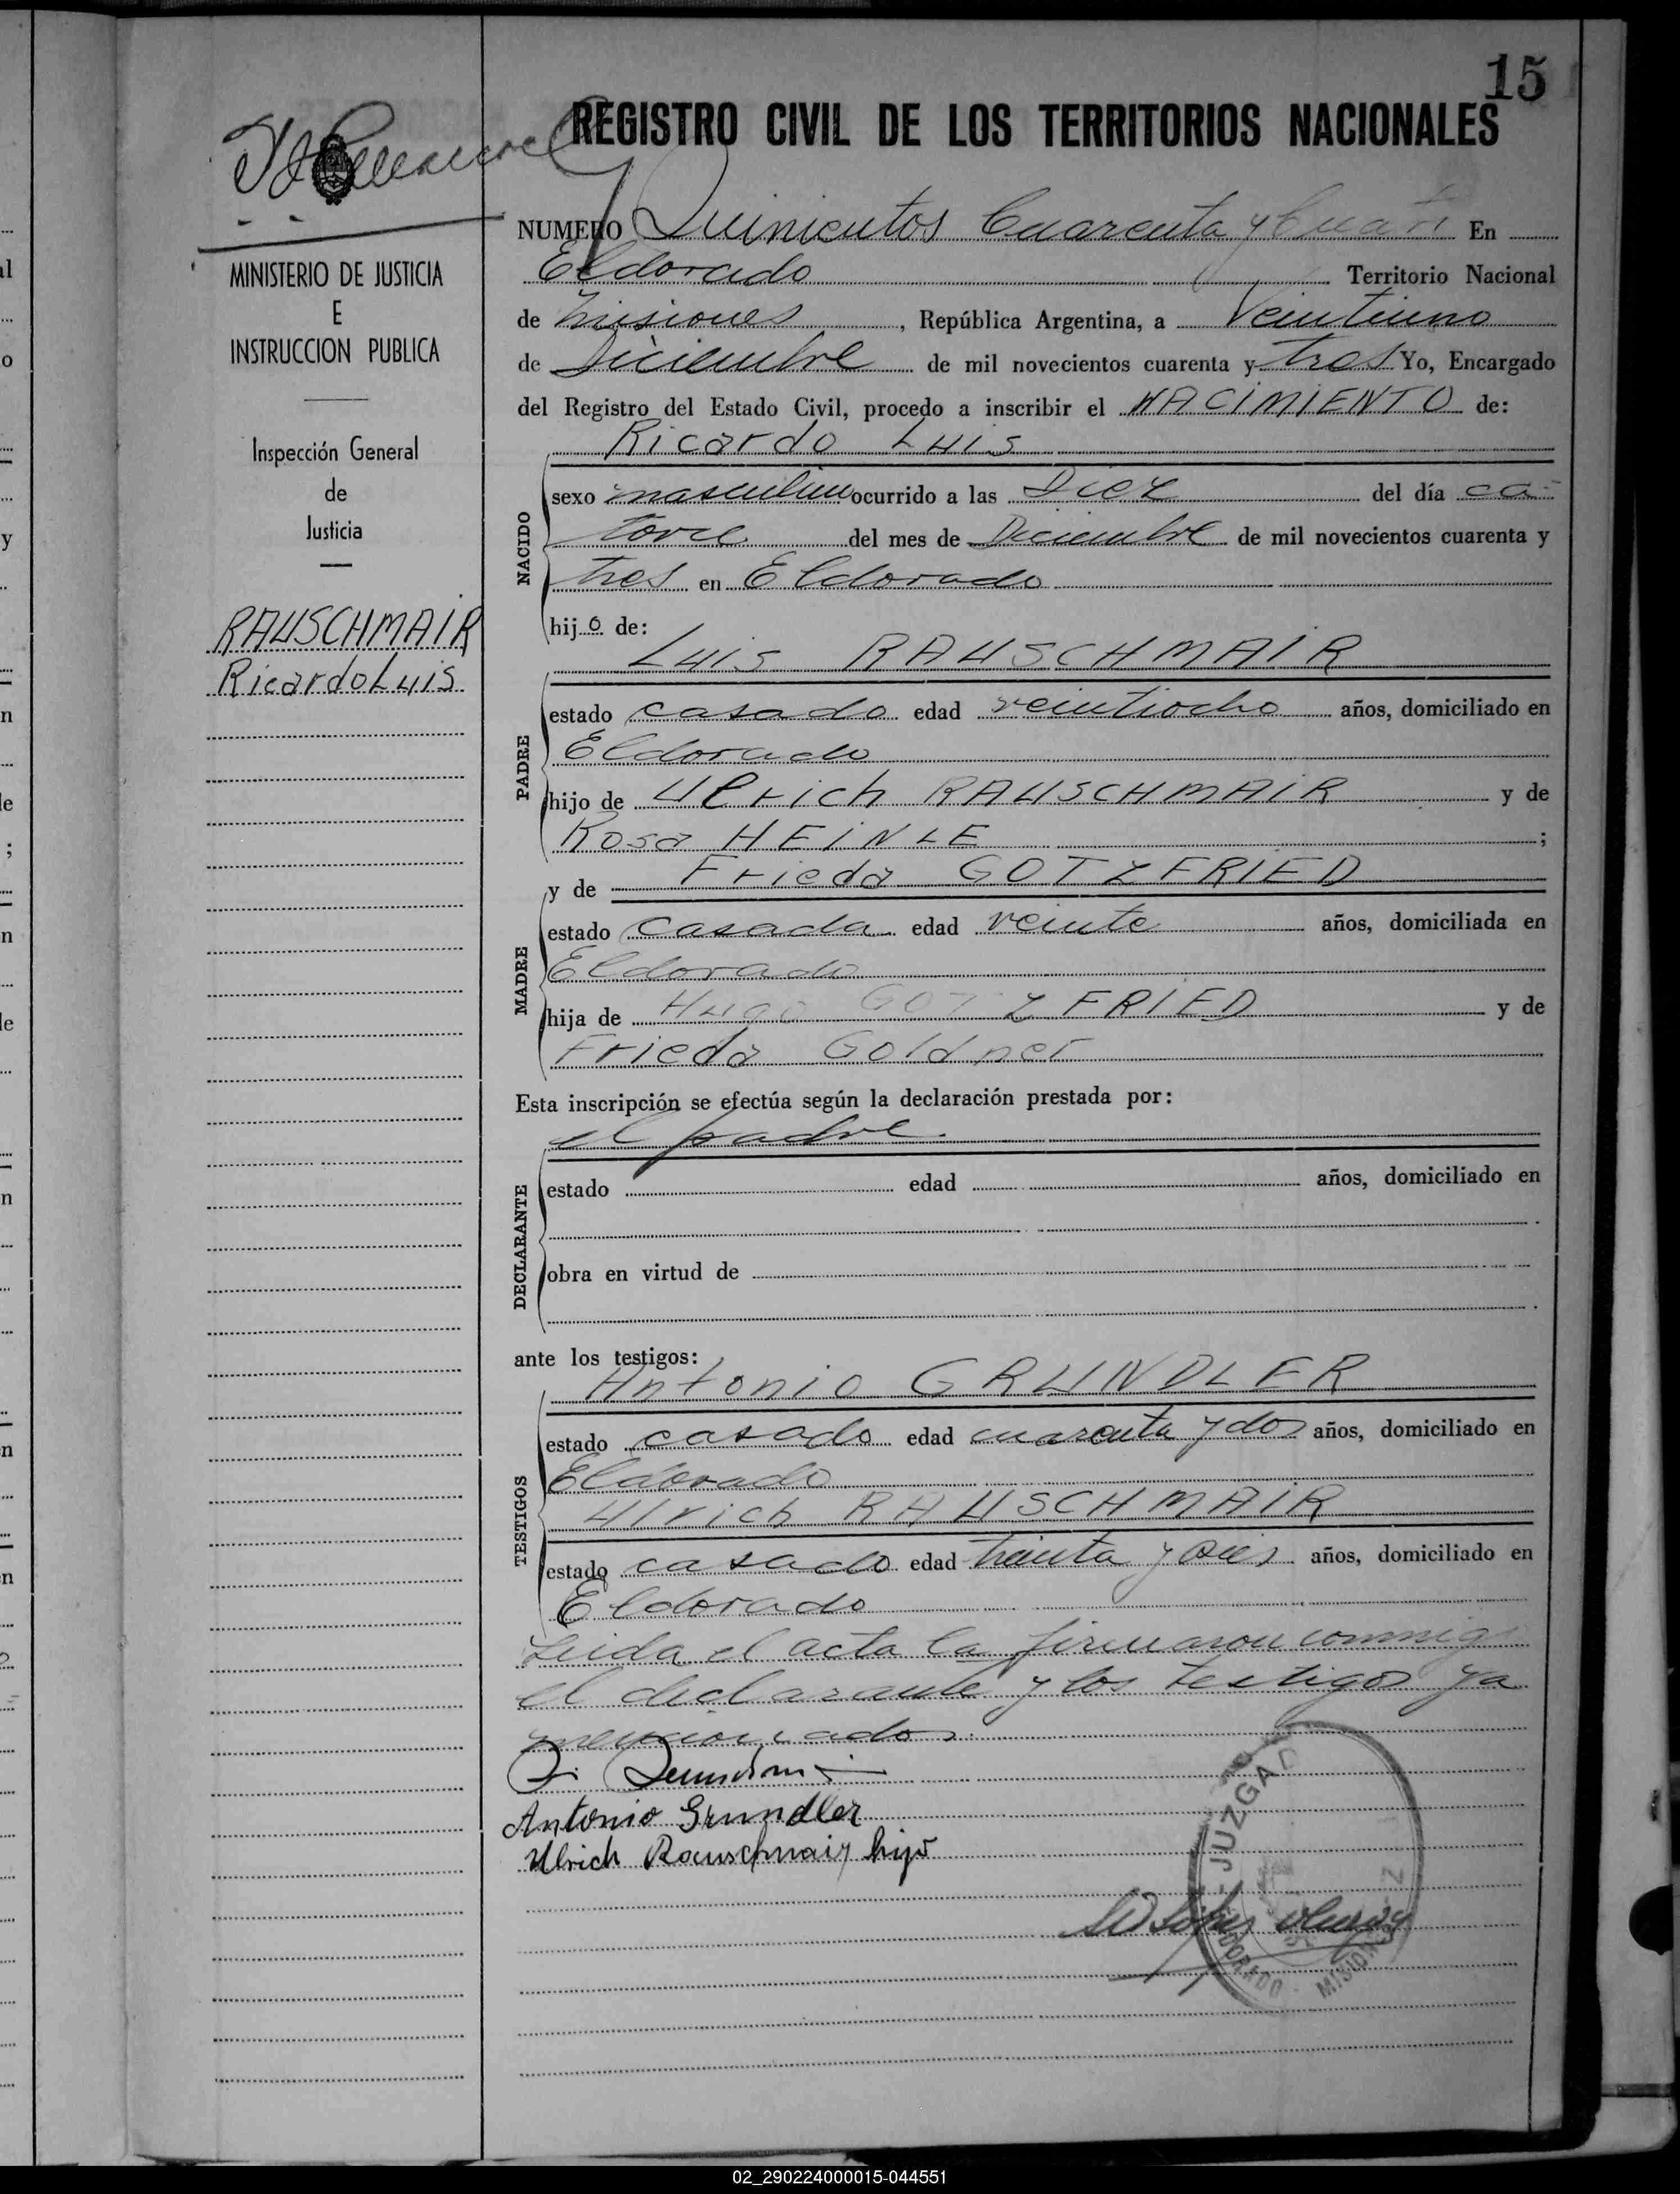 15
REGISTRO CIVIL DE LOS TERRITORIOS NACIONALES
MINISTERIO DE JUSTICIA
E
INSTRUCCION PUBLICA
Inspección General
de
Justicia
RAUSCHMAIR
Ricardo Luis
NUMERO Quinientos Cuarenta y Cuatro En
Eldorado Territorio Nacional
de Misiones, República Argentina, a Veintiuno
de Diciembre de mil novecientos cuarenta y tres Yo, Encargado
del Registro del Estado Civil, procedo a inscribir el NACIMIENTO de:
Ricardo Luis
NACIDO
sexo masculino ocurrido a las Diez del día ca-
torce del mes de Diciembre de mil novecientos cuarenta y
tres en Eldorado
hijo de:
Luis RAUSCHMAIR
PADRE
estado casado edad veintiocho años, domiciliado en
Eldorado
hijo de Ulrich RAUSCHMAIR y de
Rosa HEINLE ;
y de Frieda GOTZFRIED
MADRE
estado casada edad veinte años, domiciliada en
Eldorado
hija de Hugo GOTZFRIED y de
Frieda Goldner
Esta inscripción se efectúa según la declaración prestada por:
el padre.
DECLARANTE
estado edad años, domiciliado en
obra en virtud de
ante los testigos:
Antonio GRUNDLER
TESTIGOS
estado casado edad cuarenta y dos años, domiciliado en
Eldorado
Ulrich RAUSCHMAIR
estado casado edad treinta y años, domiciliado en
Eldorado
Leida el acta la firmaron conmigo
el declarante y los testigos ya
mencionados.
Antonio Grundler
Ulrich Rauschmair hijo
JUZGAD
ELDORADO - MISIONES
02_290224000015-044551